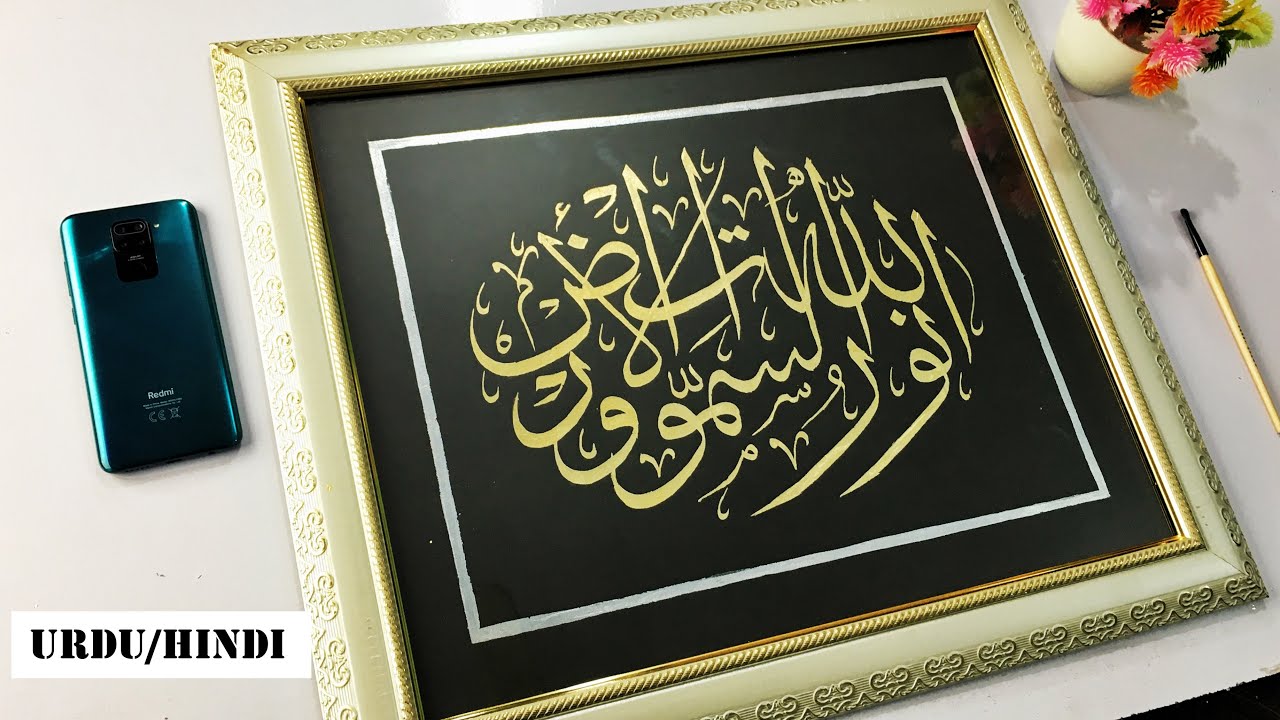 الله نور السموات والارض
Redmi
URDU/HINDI